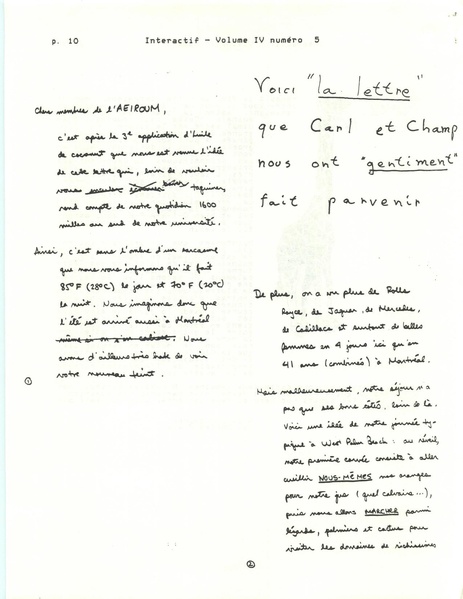 p. 10 Interactif - Volume IV numéro 5
Voici "la lettre"
que Carl et Champ
nous ont "gentiment"
fait parvenir
Chers membres de l'AEIROUM,
c'est après la 3e application d'huile
de coconut que nous est venue l'idée
de cette lettre qui, loin de vouloir
vous taquiner,
rend compte de notre quotidien 1600
milles au sud de notre université.
Ainsi, c'est sans l'ombre d'un sarcasme
que nous vous informons qu'il fait
85°F (28°C) le jour et 70°F (20°C)
la nuit. Nous imaginons donc que
l'été est arrivé aussi à Montréal
même si on s'en Nous
avons d'ailleurs très hâte de voir
votre nouveau teint.
1
De plus, on a vu plus de Rolls
Royce, de Jaguar, de Mercedes,
de Cadillacs et surtout de belles
femmes en 4 jours ici qu'en
41 ans (combinés) à Montréal.
Mais malheureusement, notre séjour n'a
pas que ses bons côtés. Loin de là.
Voici une idée de notre journée ty-
pique à West Palm Beach : au réveil,
notre première corvée consiste à aller
cueillir NOUS-MÊMES nos oranges
pour notre jus (quel calvaire...),
puis nous allons MARCHER parmi
lézards, palmiers et cactus pour
visiter les domaines de richissimes
2